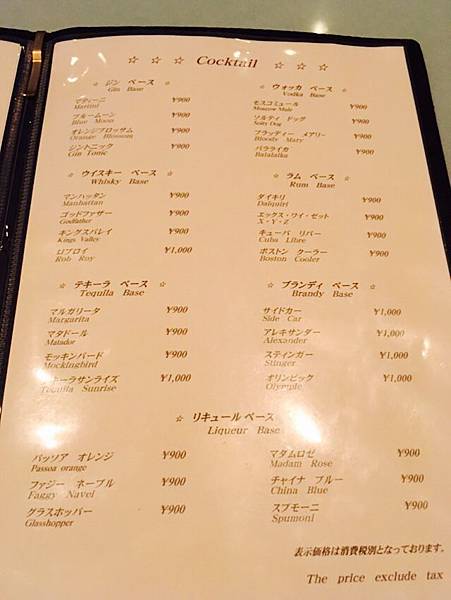 ☆ ☆ ☆ Cocktail ☆ ☆ ☆
☆ ジン ベース ☆
Gin Base
マティーニ ¥900
Martini
ブルームーン ¥900
Blue Moon
オレンジブロッサム ¥900
Orange Blossom
ジントニック ¥900
Gin Tonic
☆ ウォッカ ベース ☆
Vodka Base
モスコミュール ¥900
Moscow Mule
ソルティ ドッグ ¥900
Solty Dog
ブラッディー メアリー ¥900
Bloody Mary
バラライカ ¥900
Balalaika
☆ ウイスキー ベース ☆
Whisky Base
マンハッタン ¥900
Manhattan
ゴッドファザー ¥900
Godfather
キングスバレイ ¥900
Kings Valley
ロブロイ ¥1,000
Rob Roy
☆ ラム ベース ☆
Rum Base
ダイキリ ¥900
Daiquiri
エックス・ワイ・ゼット ¥900
X・Y・Z
キューバ リバー ¥900
Cuba Libre
ボストン クーラー ¥900
Boston Cooler
☆ テキーラ ベース ☆
Tequila Base
マルガリータ ¥900
Margarita
マタドール ¥900
Matador
モッキンバード ¥900
Mockingbird
テキーラサンライズ ¥1,000
Tequila Sunrise
☆ ブランディ ベース ☆
Brandy Base
サイドカー ¥1,000
Side Car
アレキサンダー ¥1,000
Alexander
スティンガー ¥1,000
Stinger
オリンピック ¥1,000
Olympic
☆ リキュール ベース ☆
Liqueur Base
パッソア オレンジ ¥900
Passoa orange
ファジー ネーブル ¥900
Faggy Navel
グラスホッパー ¥900
Glasshopper
マダムロゼ ¥900
Madam Rose
チャイナ ブルー ¥900
China Blue
スプモーニ ¥900
Spumoni
表示価格は消費税別となっております。
The price exclude tax